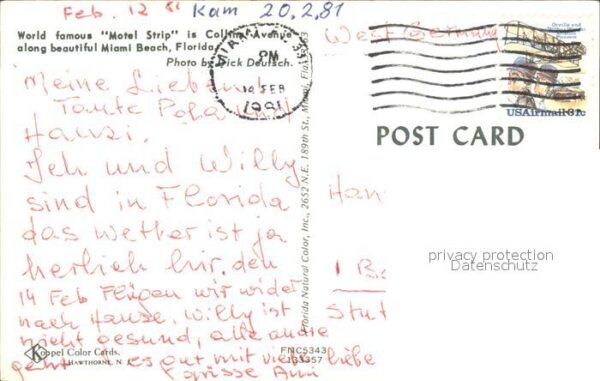 Feb. 12 81 Kam 20.2.81
World famous "Motel Strip" is Collins Avenue
along beautiful Miami Beach, Florida.
Photo by Dick Deutsch.
Meine Liebe
Tante Pola und
Hansi.
Ich und Willy
sind in Florida
das wetter ist ja
herlich hir. den
14 Feb Flügen wir wider
nach Hause. Willy ist
nicht gesund, alle andre
geht es gut mit viel liebe
grüsse Ani
Koppel Color Cards.
HAWTHORNE, N.
FNC5343
133357
Florida Natural Color, Inc., 2652 N.E. 189th St., Miami, Fla. 33
MIAMI, FL 33
PM
12 FEB
1981
West Germany
Orville and
USAirmail 31c
POST CARD
Han
1 Be
Stut
privacy protection
Datenschutz